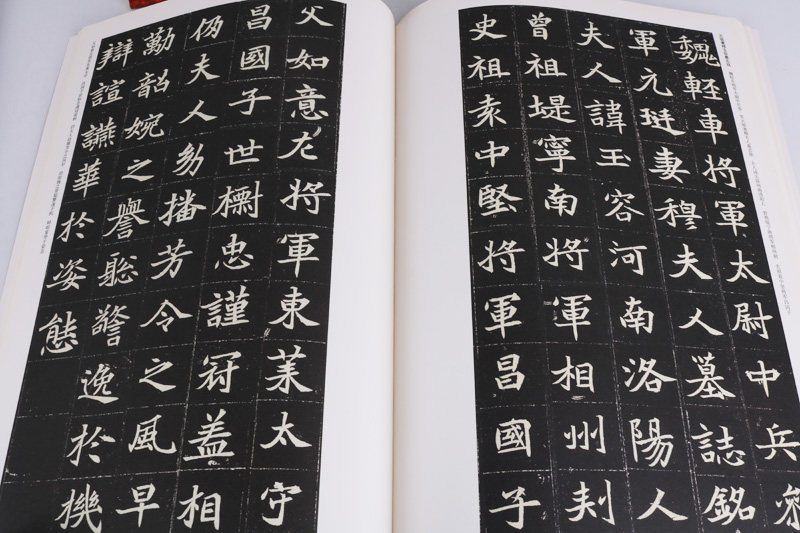 魏軽車將軍太尉中兵叅
軍元珽妻穆夫人墓誌銘
夫人諱玉容河南洛陽人
曾祖堤寧南將軍相州刾
史祖袁中堅將軍昌國子
父如意左將軍東萊太守
昌國子世欄忠謹冠盖相
仍夫人幼播芳令之風早
勤韶婉之譽聡警逸於機
辯諠讌華於姿態